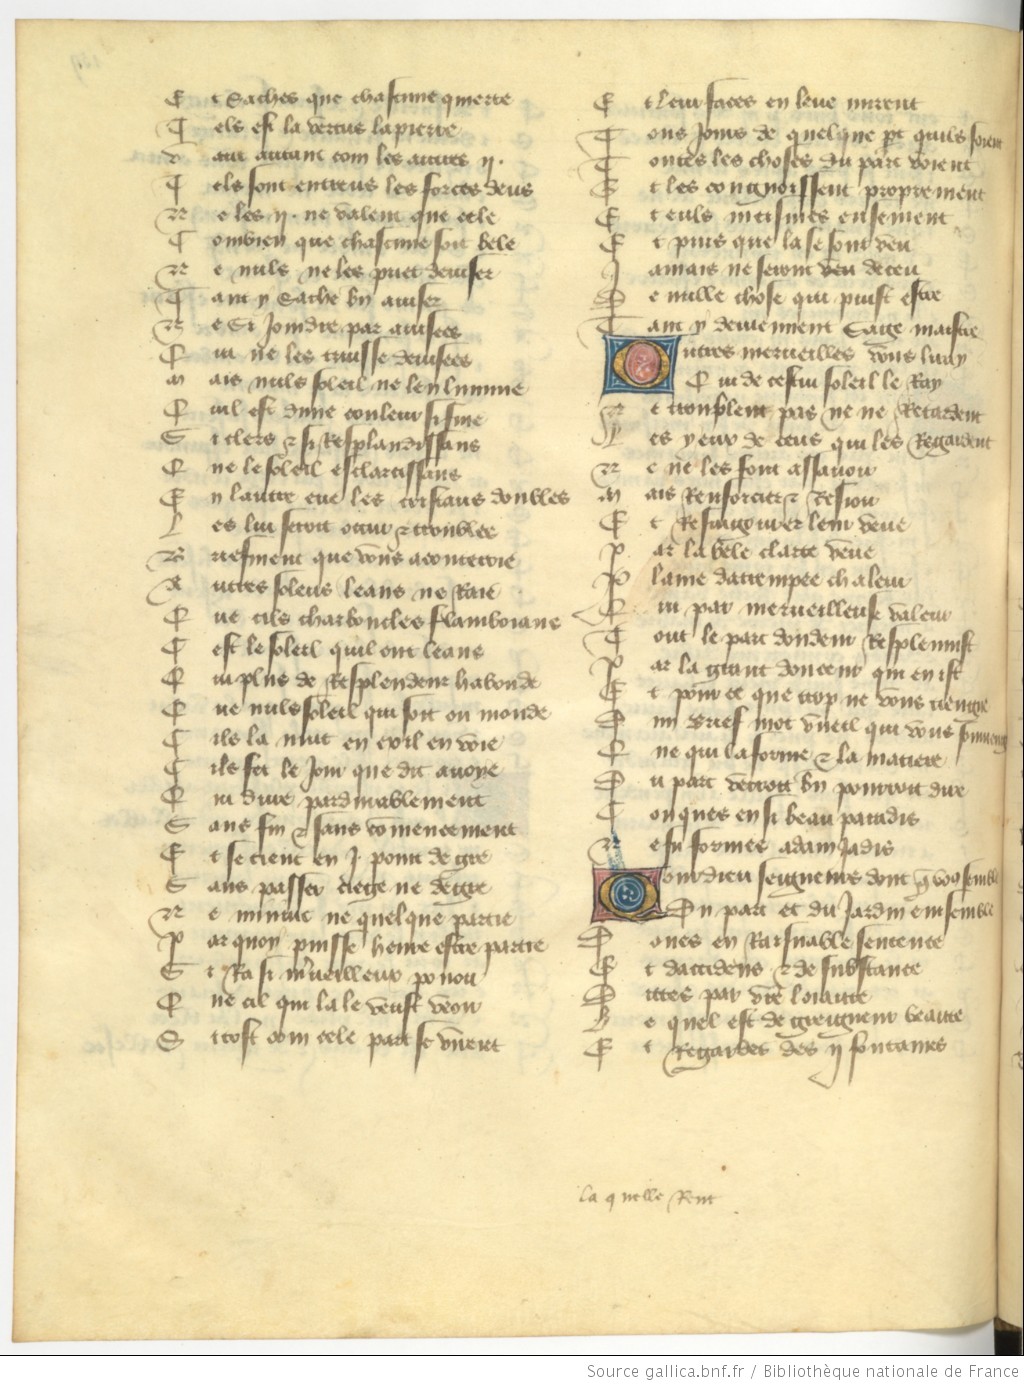 E t Saches que chascune querre
T els est la vertus la pierre
V aut autant com les autres ij.
T els sont entreus les forces deus
N e les ij. ne valent que celle
C ombien que chascune soit bele
N e nuls ne les puet deviser
T ant y Sache bn aviser
N e Si Joindre par avisees
Q ui ne les truisse devisees
M ais nuls soleil ne lenlumine
Q uil est dune couleur si fine
S i clers & si Resplandissans
Q ne le soleil esclarcissans
E n lautre eue les cristaus doubles
L es lui seroit obscur & troubles
B riefment que vous aconteroie
A utres soleus leans ne Raie
Q ue cils charboncles flamboiane
C est le soleil quil ont leans
Q ui plus de Resplendeur habonde
Q ue nuls soleil qui soit ou monde
C ils la nuit en exil envoie
C ils fet le Jour que dit avoye
Q ui dure pardurablement
S ans fin & sans commencement
E t se tient en j. point de gre
S ans passer siege ne degre
N e minut ne quelque partie
P ar quoy puisse heure estre partie
S i Ra si merveilleux pooir
Q ne cil qui la le veust veoir
S i tost com cele part se virent
E t leur faces en leue mirent
T ous Jours de quelque part quils soient
T outes les choses du parc voient
E t les congnoissent proprement
E t euls meismes ensement
E t puis que la se sont veu
J amais ne seront deceu
D e nulle chose qui puist estre
T ant y deviennent Saige maistre
O utres merveilles vous liray
Q ui de cestui soleil le Ray
N e troublent pas ne ne Retardent
L es yeux de ceus qui les Regardent
N e ne les font assavoir
M ais Renforcier & Resioir
E t Resvigourer leur veue
P ar la bele clarte veue
P laine dattempee chaleur
Q ui par merveilleuse valeur
T out le parc dondeur Resplenist
P ar la grant douceur qui en ist
E t pour ce que trop ne vous tiengne
D un brief mot vueil qui vous souviengne
Q ne qui la forme & la matiere
D u parc verroit bn pourroit dire
C onques en si beau paradis
N e fu formes adam Jadis
P our dieu seigneurs dont que vous semble
Du parc et du Jardin ensemble
D ones en Raisnable sentence
E t daccidens & de substance
D ictes par vostre loiaute
L e quel est de greigneur beaute
E t Regardes des ij fontaines
la quelle Rent
Source gallica.bnf.fr / Bibliothèque nationale de France